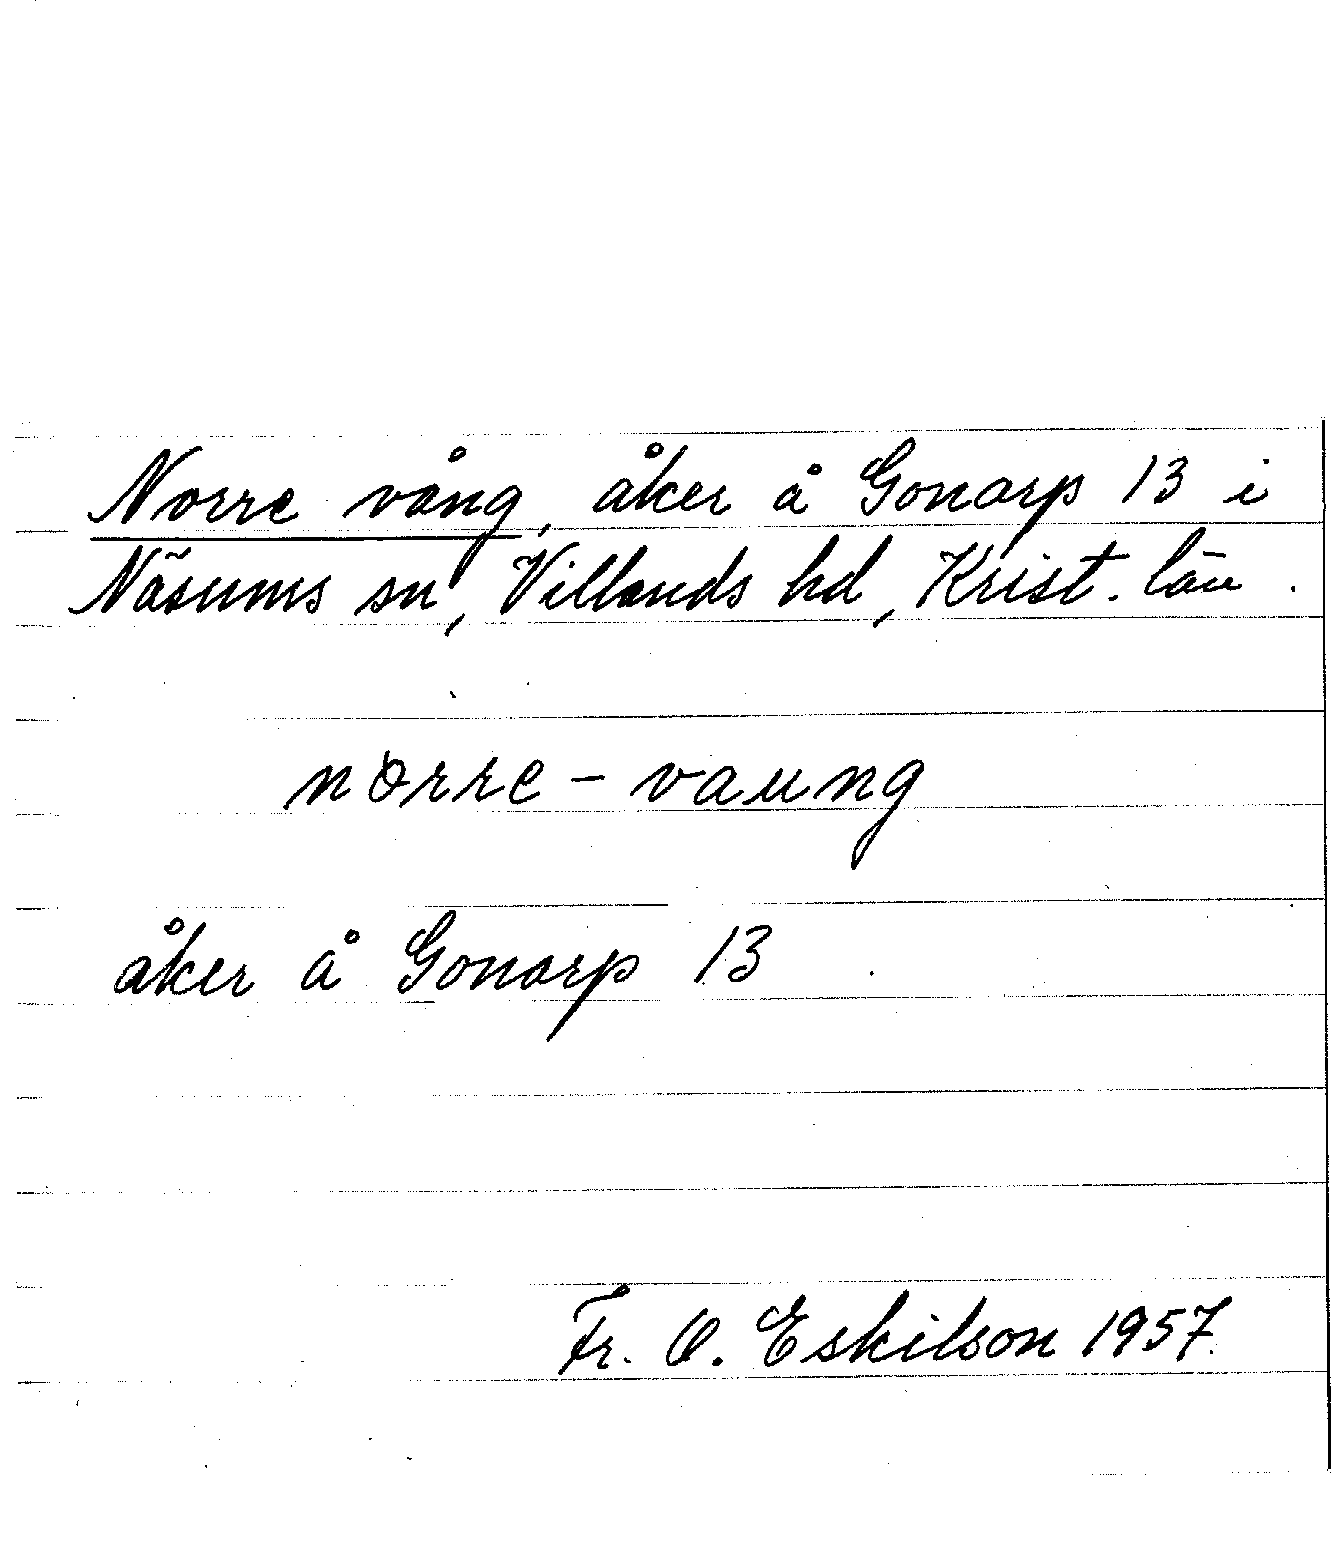 Norre vång, åker å Gonarp 13 i
Näsums sn, Villands hd, Krist. län.
norre - vaung
åker å Gonarp 13
Fr. O. Eskilson 1957.